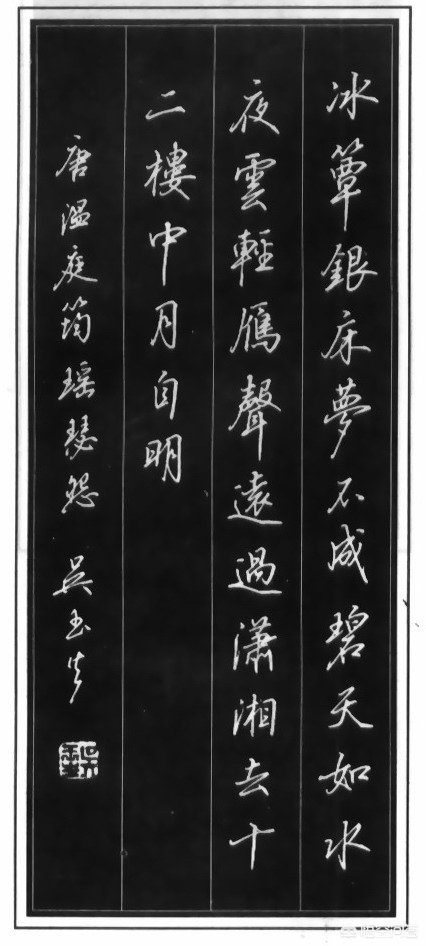 冰簟銀床夢不成碧天如水
夜雲輕雁聲遠過瀟湘去十
二樓中月自明
唐温庭筠瑶瑟怨 吳玉生